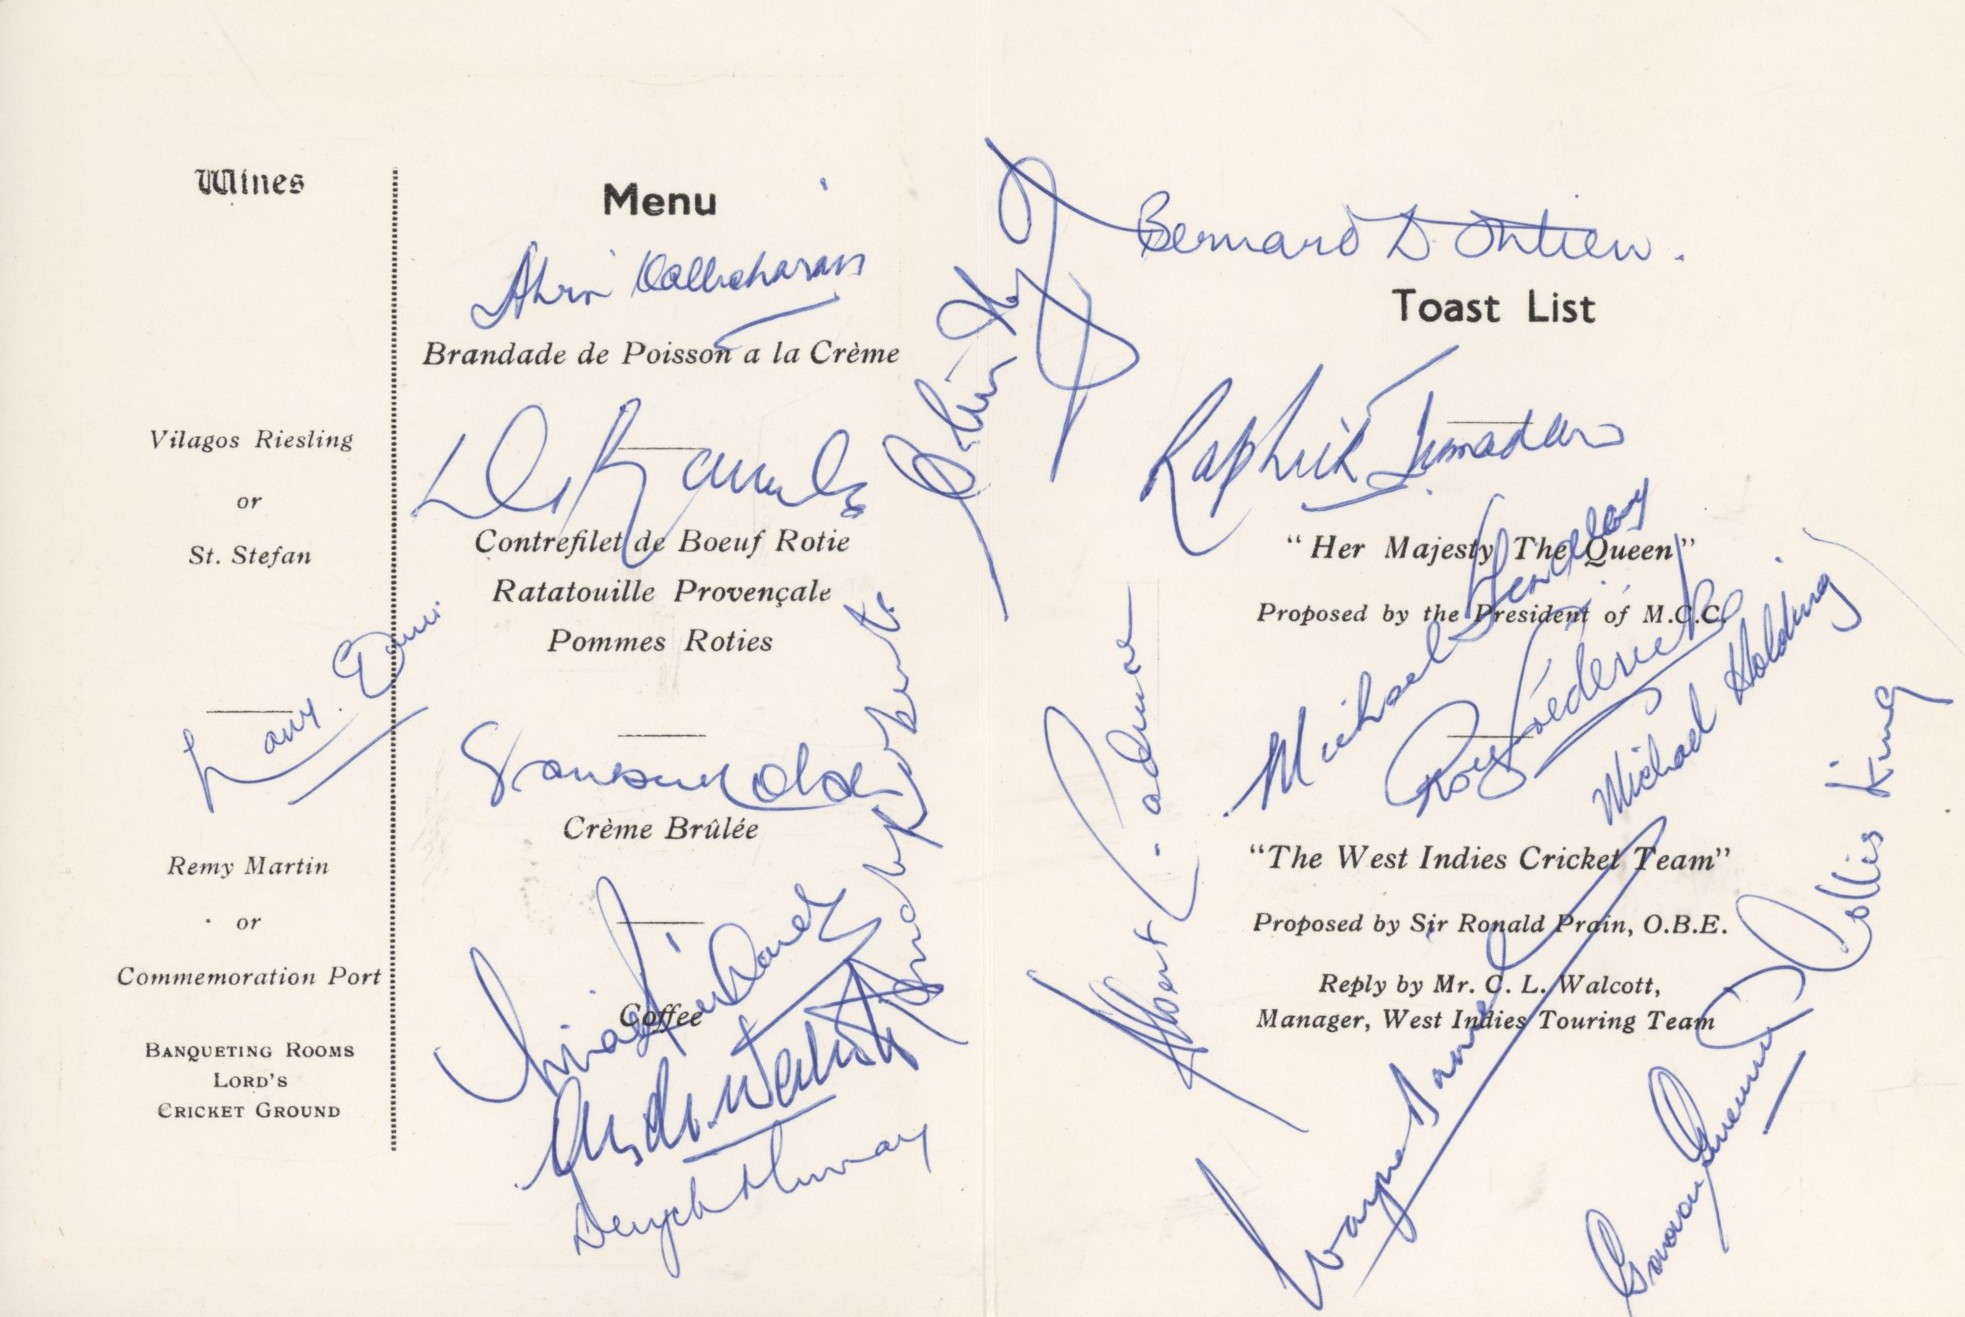 Wines
Vilagos Riesling
or
St. Stefan
Larry Gomes
Remy Martin
or
Commemoration Port
BANQUETING ROOMS
LORD'S
CRICKET GROUND
Menu
Alvin Kallicharran
Brandade de Poisson a la Crème
Contrefilet de Boeuf Rotie
Ratatouille Provençale
Pommes Roties
Crème Brûlée
Coffee
Vivian Richards
Andy Roberts
Deryck Murray
Bernard D. Julien.
Toast List
Raphick Jumadeen
"Her Majesty The Queen"
Proposed by the President of M.C.C.
Michael Findlay
Roy Fredericks
Michael Holding
Albert L. Padmore
"The West Indies Cricket Team"
Proposed by Sir Ronald Prain, O.B.E.
Reply by Mr. C. L. Walcott,
Manager, West Indies Touring Team
Collis King
Wayne Daniel
Gordon Greenidge